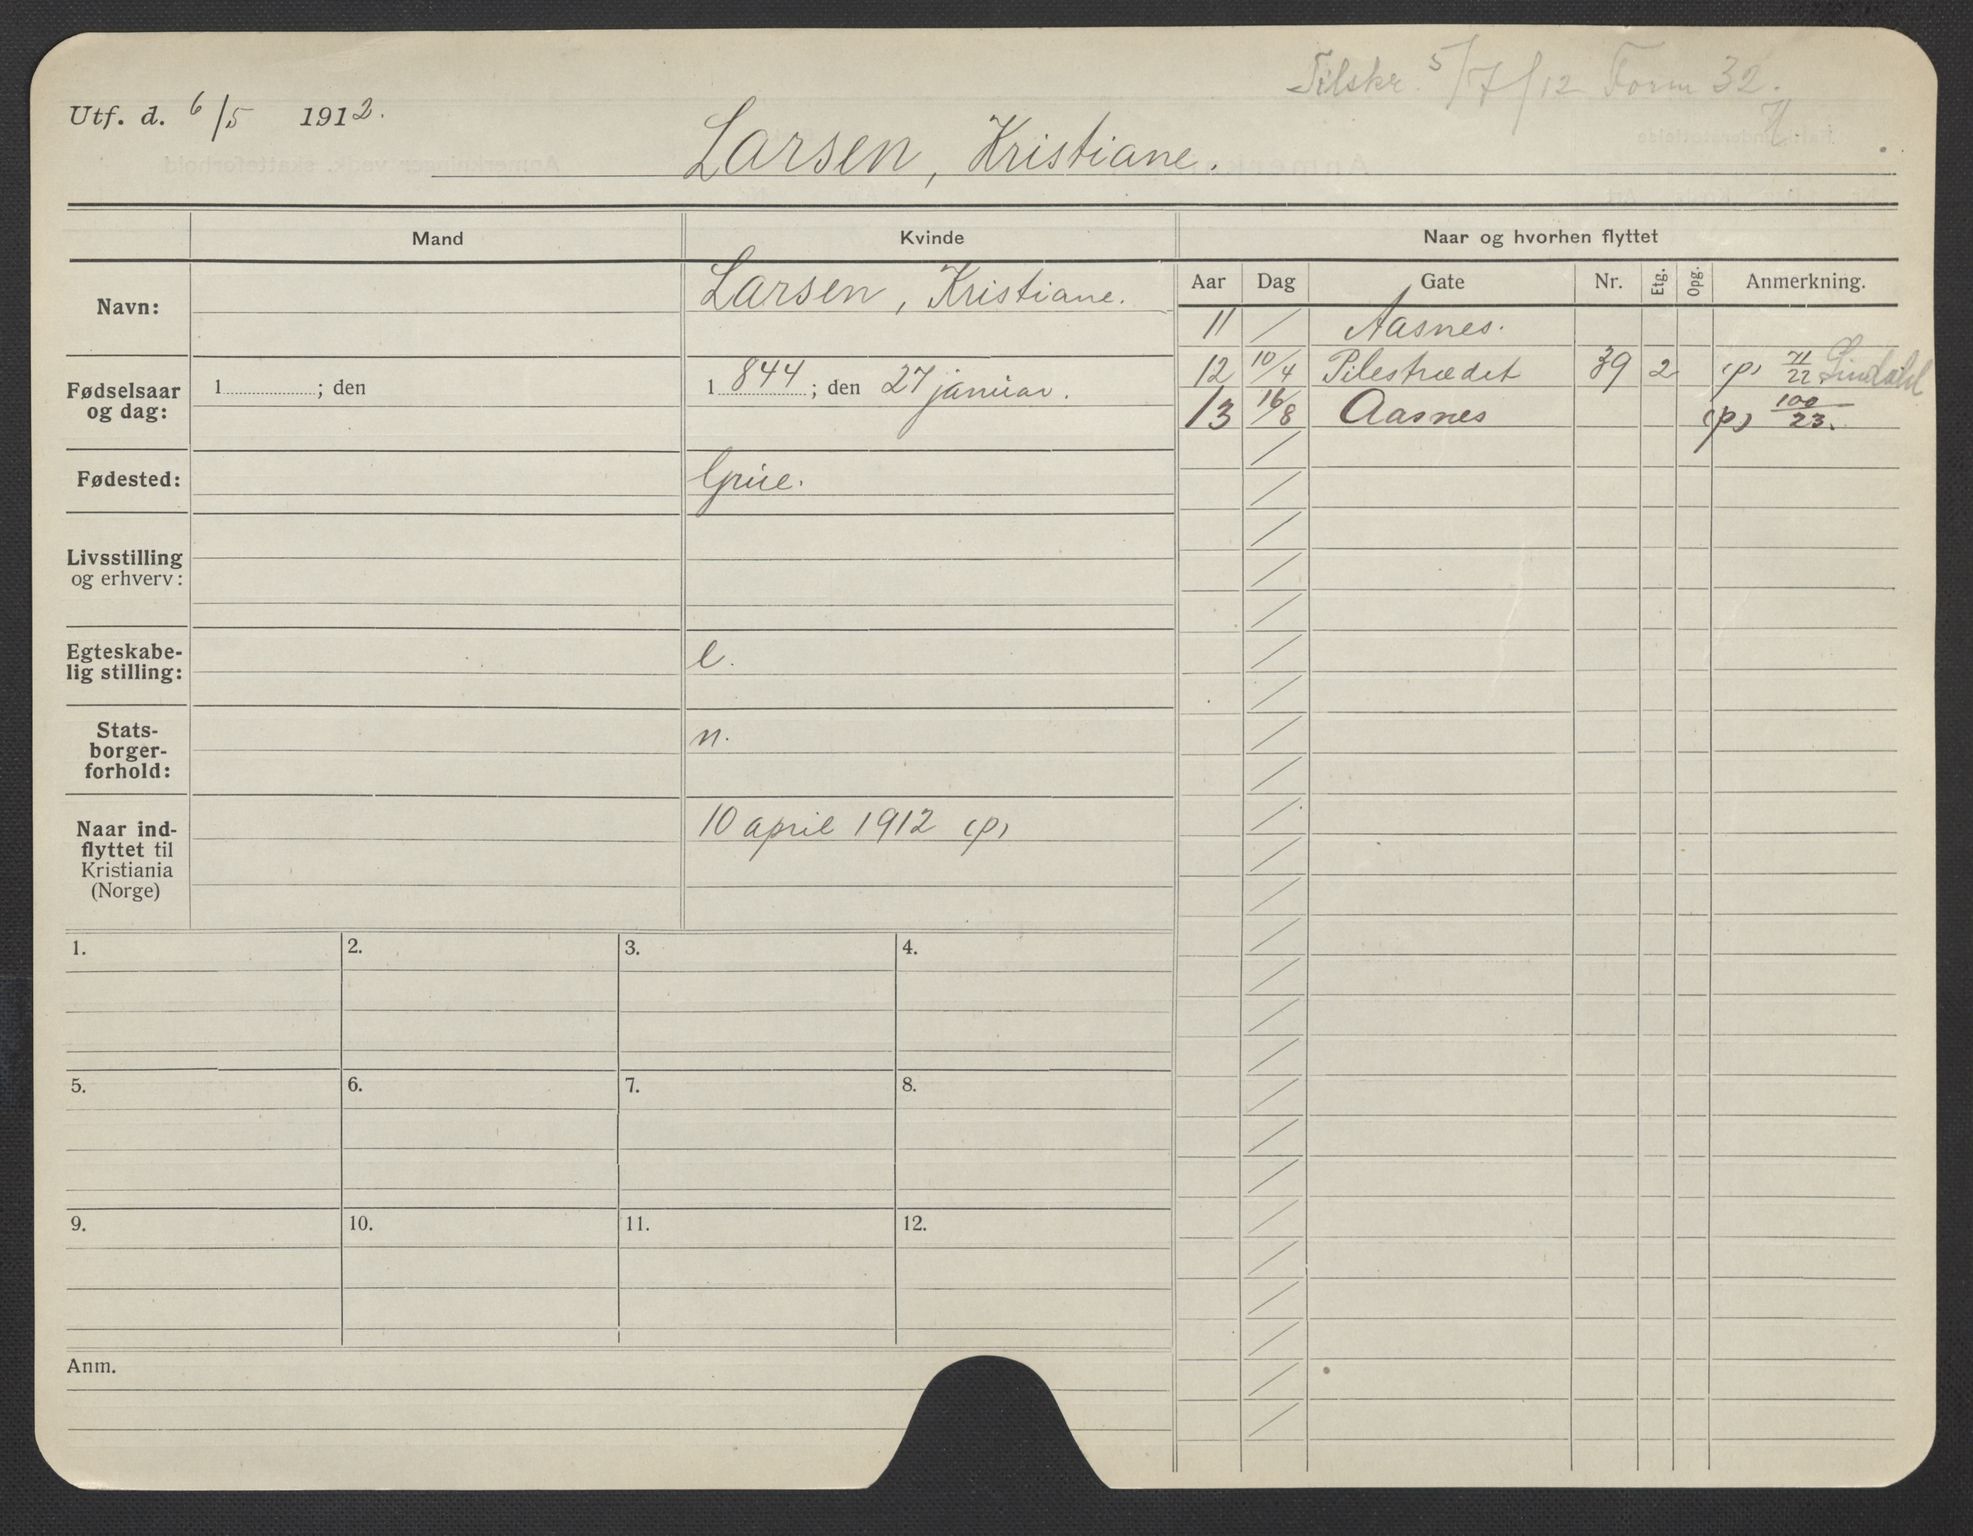 Tilskr. 5/7/12 Form 32.
Utf. d. 6/5 1912.
Larsen, Kristiane.
Mand
Kvinde
Naar og hvorhen flyttet
Aar Dag Gate Nr. Etg. Opg. Anmerkning.
11 / Aasnes.
12 10/4 Pilestrædet 39 2 (p) 71/22 Lindahl
13 16/8 Aasnes (p) 100/23.
Navn:
Larsen, Kristiane.
Fødselsaar
og dag:
1 ; den
1 844 ; den 27 januar.
Fødested:
Grue.
Livsstilling
og erhverv:
Egteskabe-
lig stilling:
e.
Stats-
borger-
forhold:
n.
Naar ind-
flyttet til
Kristiania
(Norge)
10 april 1912 (p)
1. 2. 3. 4.
5. 6. 7. 8.
9. 10. 11. 12.
Anm.